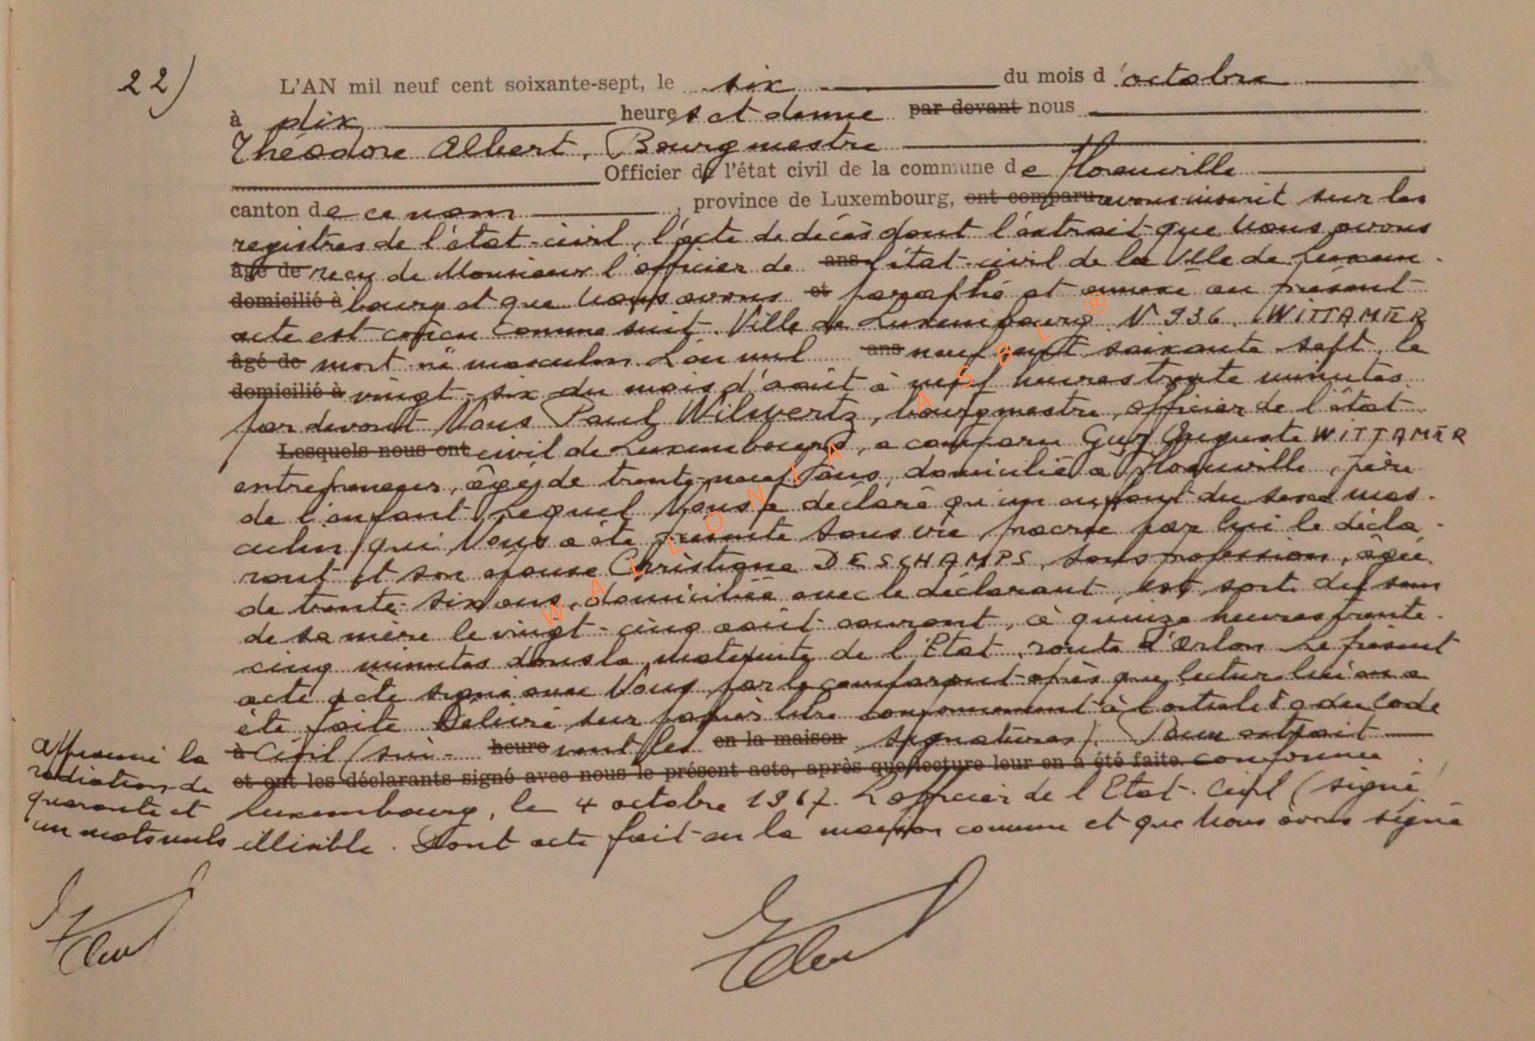 22)
L'AN mil neuf cent soixante-sept, le six du mois d'octobre
à dix heures et demie par devant nous
Théodore Albert, Bourgmestre
Officier de l'état civil de la commune de Florenville
canton de ce nom, province de Luxembourg, ont comparu avons inscrit sur les
registres de l'état-civil, l'acte de décès dont l'extrait que Nous avons
âgé de reçu de Monsieur l'officier de ans l'état-civil de la Ville de Luxem-
domicilié à bourg et que Nous avons et paraphé et annexé au présent
acte est conçu comme suit. Ville de Luxembourg N° 936. WITTAMER
âgé de mort-né masculin L'an mil ans neuf cent soixante sept, le
domicilié à vingt-six du mois d'août à neuf heures trente minutes
par devant Nous Paul Wilwertz, bourgmestre, officier de l'état
Lesquels nous ont civil de Luxembourg, a comparu Guy Auguste WITTAMER
entrepreneur, âgé de trente-neuf ans, domicilié à Florenville, père
de l'enfant, Lequel Nous a déclaré qu'un enfant du sexe mas-
culin, qui Nous a été présenté sans vie, procréé par lui le décla-
rant et son épouse Christiane DESCHAMPS, sans profession, âgée
de trente-six ans, domiciliée avec le déclarant, est sorti du sein
de sa mère le vingt-cinq août courant, à quinze heures trente-
cinq minutes dans la maternité de l'Etat, route d'Arlon Le présent
acte a été signé avec Nous par le comparant après que lecture lui en a
été faite Délivré sur papier libre conformément à l'article du Code
à Civil (sui- heure vent les en la maison signatures). Pour extrait
et ont les déclarants signé avec nous le présent acte, après que lecture leur en a été faite. conforme
Luxembourg, le 4 octobre 1967. L'officier de l'Etat-Civil (signé)
illisible. Dont acte fait en la maison commune et que Nous avons signé
Approuvé la
radiation de
quarante et
un mots nuls
WALLONIA ASBL ®